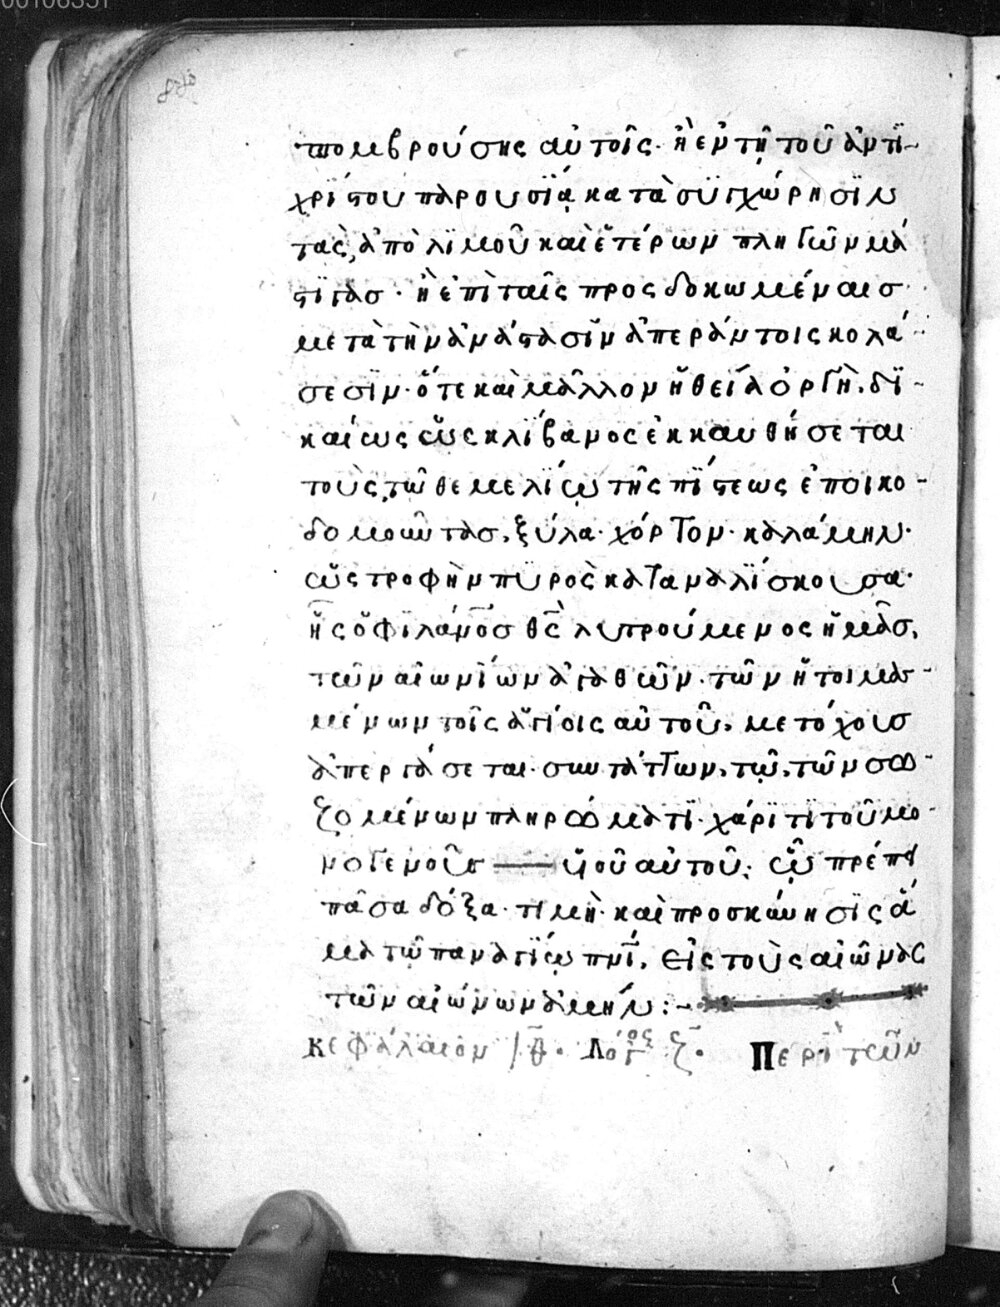 00106351
πομβρούσης αὐτοῖς· ἢ ἐν τῆ τοῦ ἀντι-
χρίστου παρουσία κατὰ συγχώρησιν
τὰς ἀπὸ λιμοῦ καὶ ἑτέρων πληγῶν μά
στιγας· ἢ ἐπὶ ταῖς προσδοκωμέναις
μετὰ τὴν ἀνάστασιν ἀπεράντοις κολά-
σεσιν· ὅτε καὶ μᾶλλον ἡ θεία ὀργὴ, δι-
καίως ὡς κλίβανος ἐκκαυθήσεται
τοὺς τῶ θεμελίω τῆς πίστεως ἐποικο-
δομοῦντας, ξύλα· χόρτον· καλάμην·
ὡς τροφὴν πυρὸς καταναλίσκουσα·
ἧς ὁ φιλάνος θς λυτρούμενος ἡμᾶς,
τῶν αἰωνίων ἀγαθῶν· τῶν ἡτοιμα-
μένων τοῖς ἁγίοις αὐτοῦ, μετόχους
ἀπεργάσεται· συντάττων, τῶ, τῶν σω-
ζομένων πληρώματι· χάριτι τοῦ μο-
νογενοῦς υἱοῦ αὐτοῦ; ὧ πρέπει
πᾶσα δόξα· τιμὴ· καὶ προσκύνησις ἅ
μα τῶ παναγίω πνι, εἰς τοὺς αἰῶνας
τῶν αἰώνων ἀμήν:-
Κεφάλαιον ιθ· Λόγος ζ· Περὶ τῶν